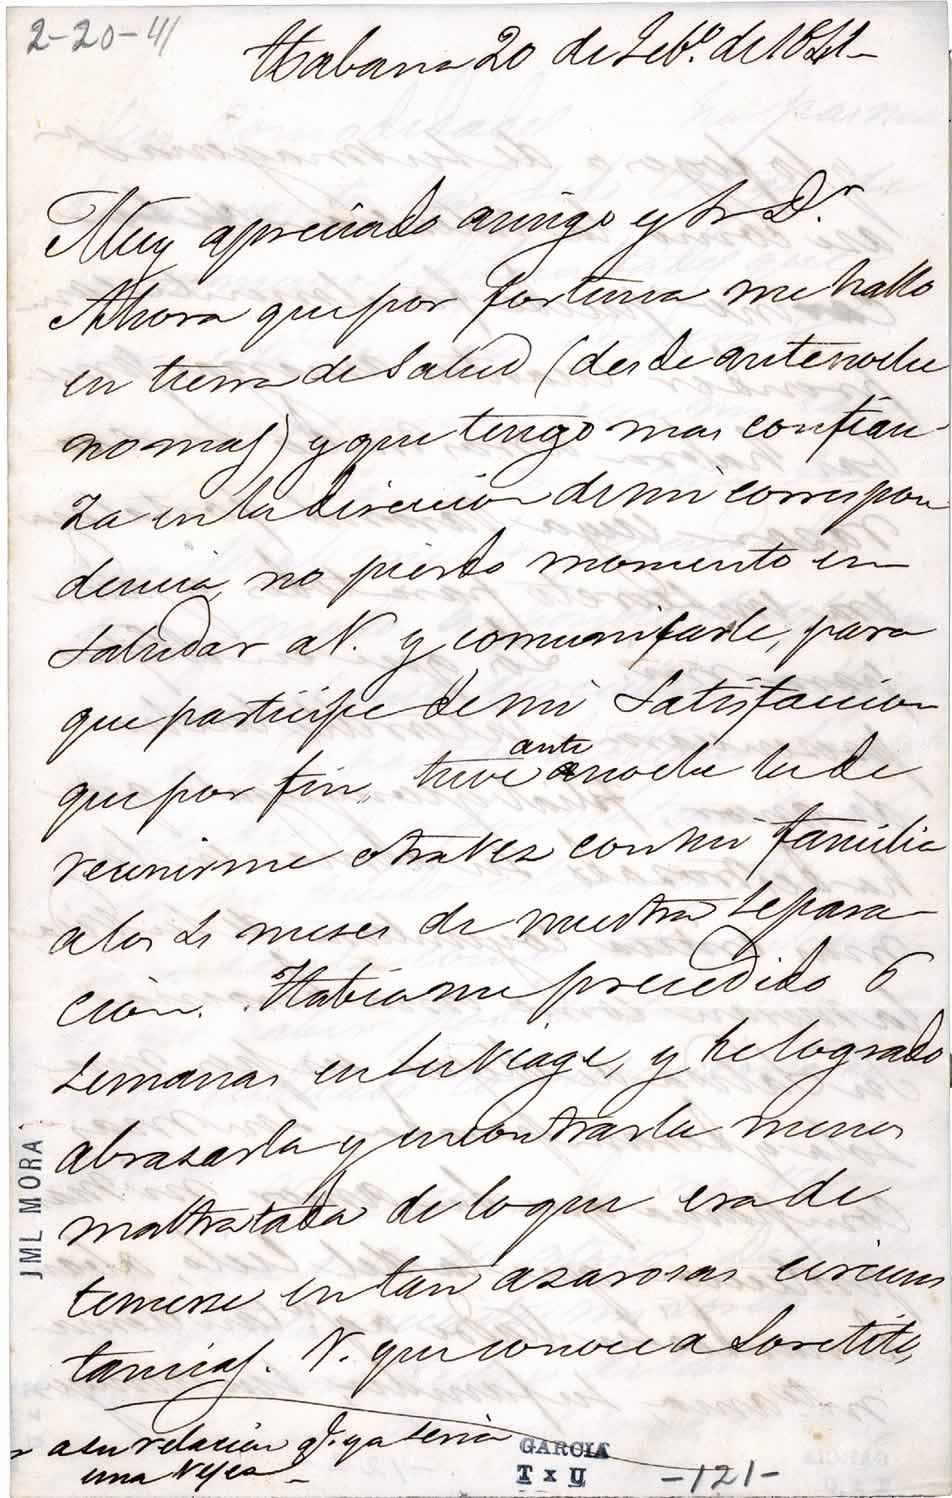 2-20-41
Habana 20 de Feb.o de 1841-
Muy apreciado amigo y Sr D.r
Ahora que por fortuna me hallo
en tierra de Salud (desde antenoche
no mas) y que tengo mas confian-
za en la direccion de mi correspon
dencia, no pierdo momento en
saludar a V. y comunicarle, para
que participe de mi Satisfaccion
que por fin, tuve ante noche la de
reunirme otra vez con mi familia
a los meses de nuestra separa-
cion. Habiame precedido 6
semanas en su viage, y he logrado
abrazarla y encontrarla menos
maltratada de lo que era de
temerse en tan azarosas circuns
tancias. V. que conoce a Loretito,
a su relacion q.e ya seria
una vejez-
JML MORA
GARCIA
T x U
-121-